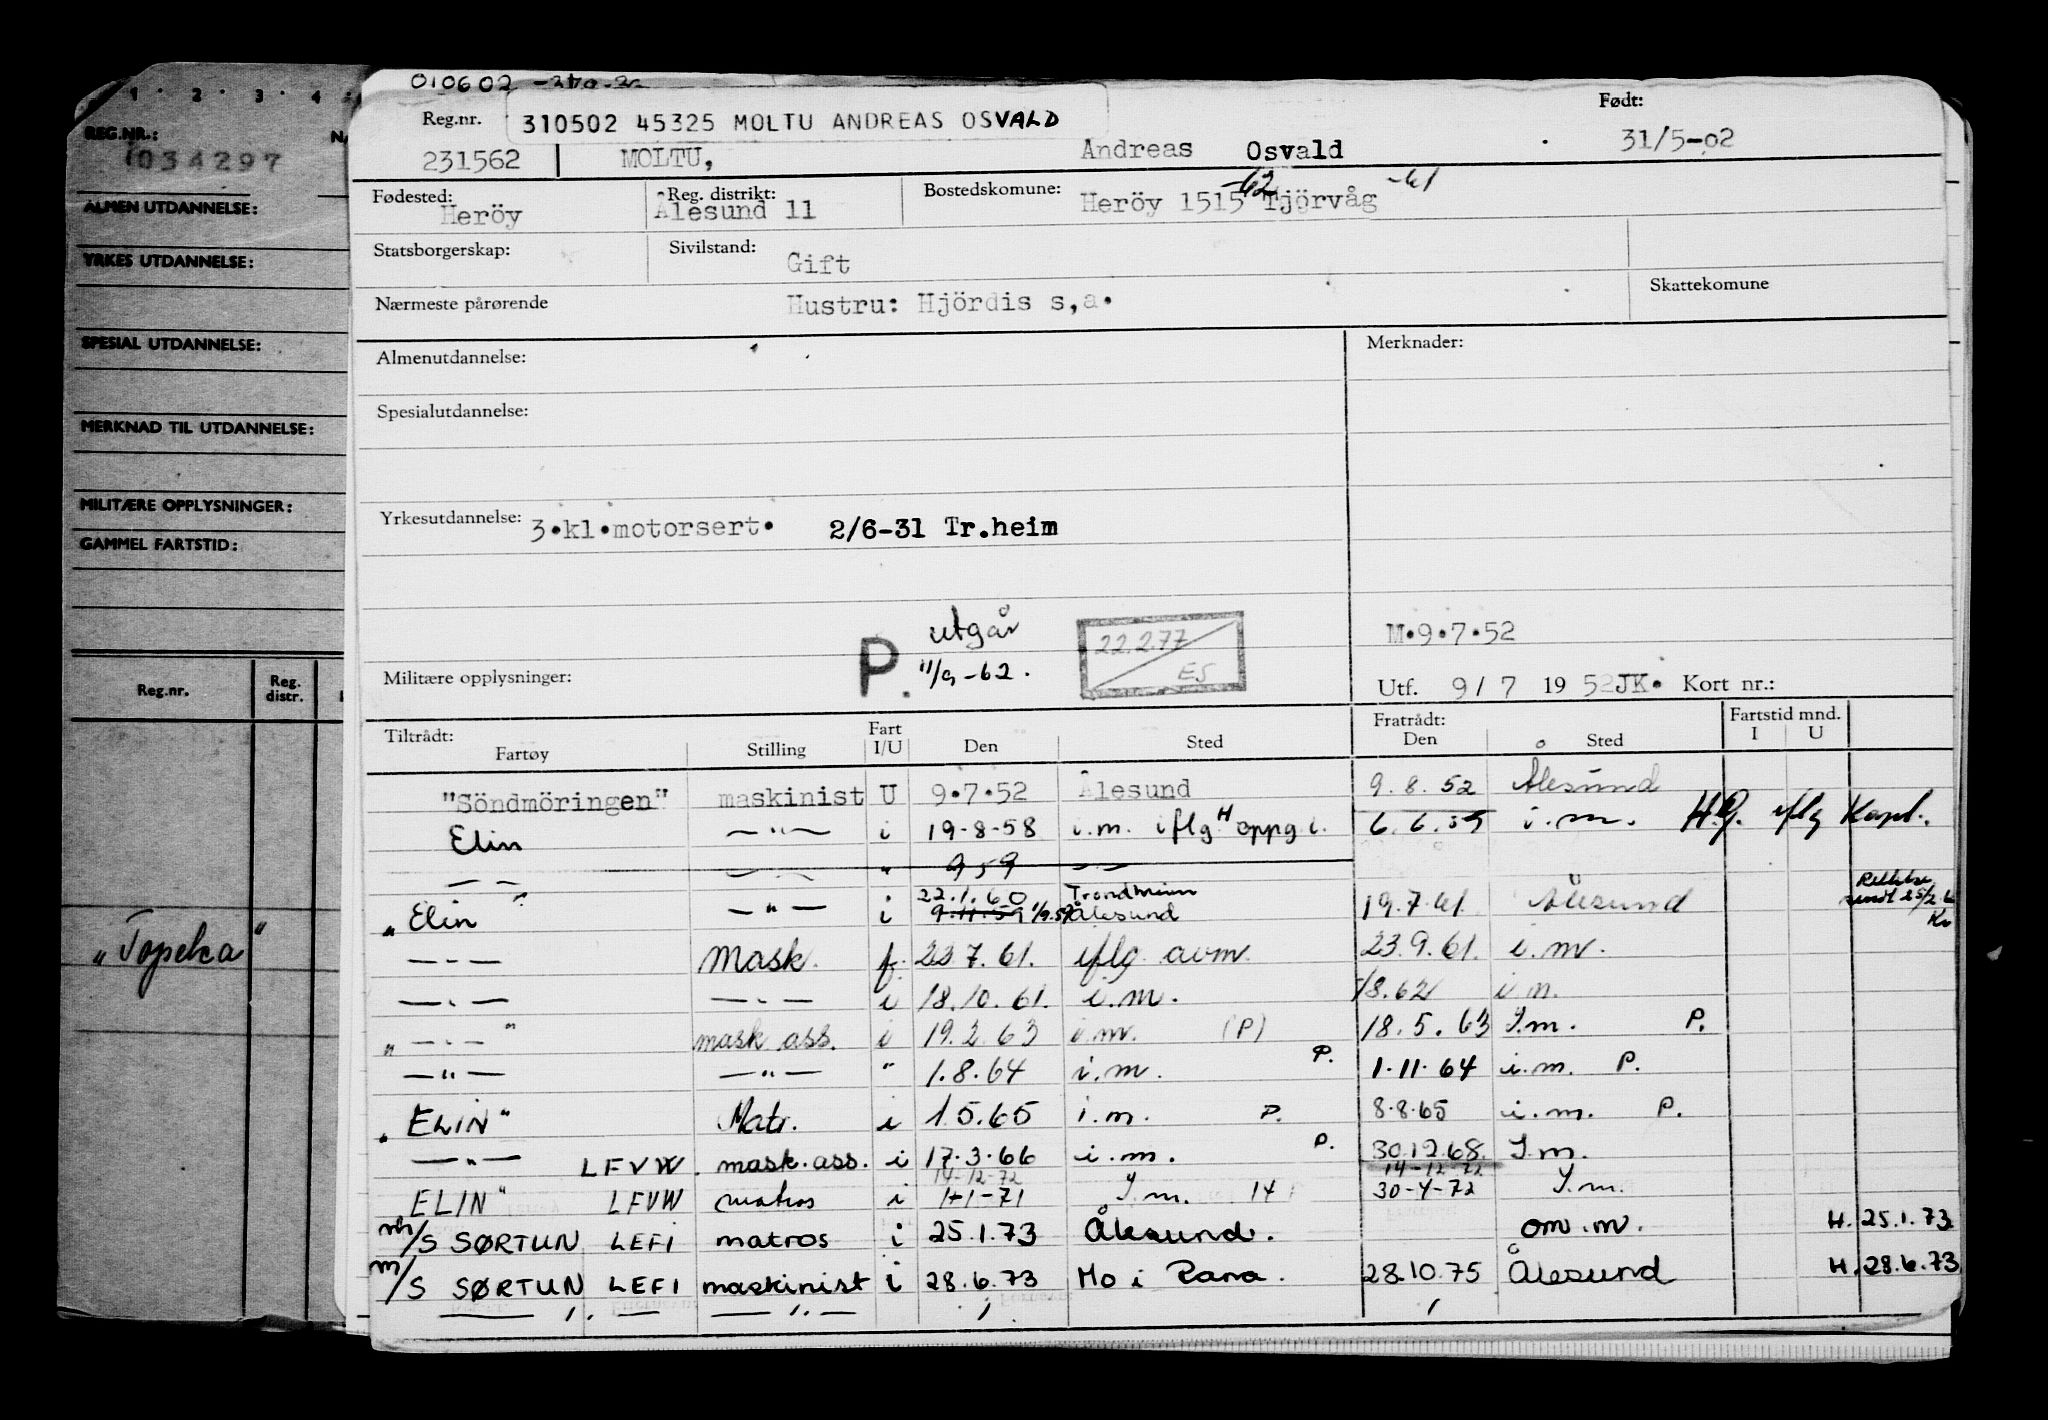 1 · 2 · 3 · 4
REG.NR.:
034297
ALMEN UTDANNELSE:
YRKES UTDANNELSE:
SPESIAL UTDANNELSE:
MERKNAD TIL UTDANNELSE:
MILITÆRE OPPLYSNINGER:
GAMMEL FARTSTID:
Reg.nr. Reg. distr.
"Topeka"
010602
Reg.nr. 310502 45325 MOLTU ANDREAS OSVALD Født:
231562 MOLTU, Andreas Osvald 31/5-02
Fødested: Reg. distrikt: Bostedskomune: -62 -61
Heröy Ålesund 11 Heröy 1515 Tjörvåg
Statsborgerskap: Sivilstand: Gift
Nærmeste pårørende Hustru: Hjördis s,a. Skattekomune
Almenutdannelse: Merknader:
Spesialutdannelse:
Yrkesutdannelse: 3.kl.motorsert. 2/6-31 Tr.heim
P. utgår 22.2.77 M.9.7.52
11/9-62. ES
Militære opplysninger: Utf. 9/7 1952JK. Kort nr.:
Tiltrådt: Fart Fratrådt: Fartstid mnd.
Fartøy Stilling I/U Den Sted Den Sted I U
"Söndmöringen" maskinist U 9.7.52 Ålesund 9.8.52 Ålesund
Elin —"— i 19-8-58 i.m. iflg. H oppg i. 6.6.59 i.m. H.G. iflg Kapt.
— — —"— " 9 59 —"—
22.1.60 Trondheim
"Elin" —"— i 9.11.59 1/9.59 Ålesund 19.7.61 Ålesund
—"— Mask. f. 23 7. 61. iflg avm. 23.9.61. i.m.
—"— —"— i 18.10.61. i.m. /8.62 i m.
" —"— " mask ass. i 19.2.63 i.m. (P) 18.5.63 I.m. P.
—"— —"— " 1.8.64 i.m. P. 1.11.64 i.m. P.
"ELIN" Matr. i 1.5.65 i.m. P. 8.8.65 i.m. P.
—"— LFVW. mask.ass. i 17.3.66 i.m. P. 30.12.68. I.m.
14-12-72 14-12-72
ELIN" LFVW matros i 1-1-71 I.m. 14 30-4-72 I.m.
m/S SØRTUN LEFI matros i 25.1.73 Ålesund. om.m. H. 25.1.73
m/S SØRTUN LEFI maskinist i 28.6.73 Mo i Rana. 28.10.75 Ålesund H. 28.6.73